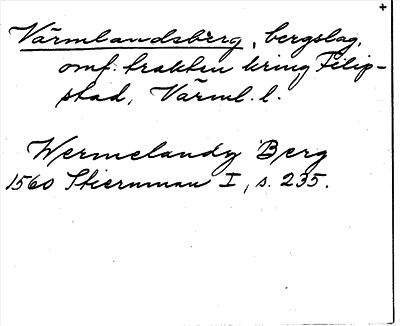 Värmlandsberg, bergslag,
omf. trakten kring Filip-
stad, Värml. l.
Wermelandz Berg
1560 Stiernman I, s. 235.